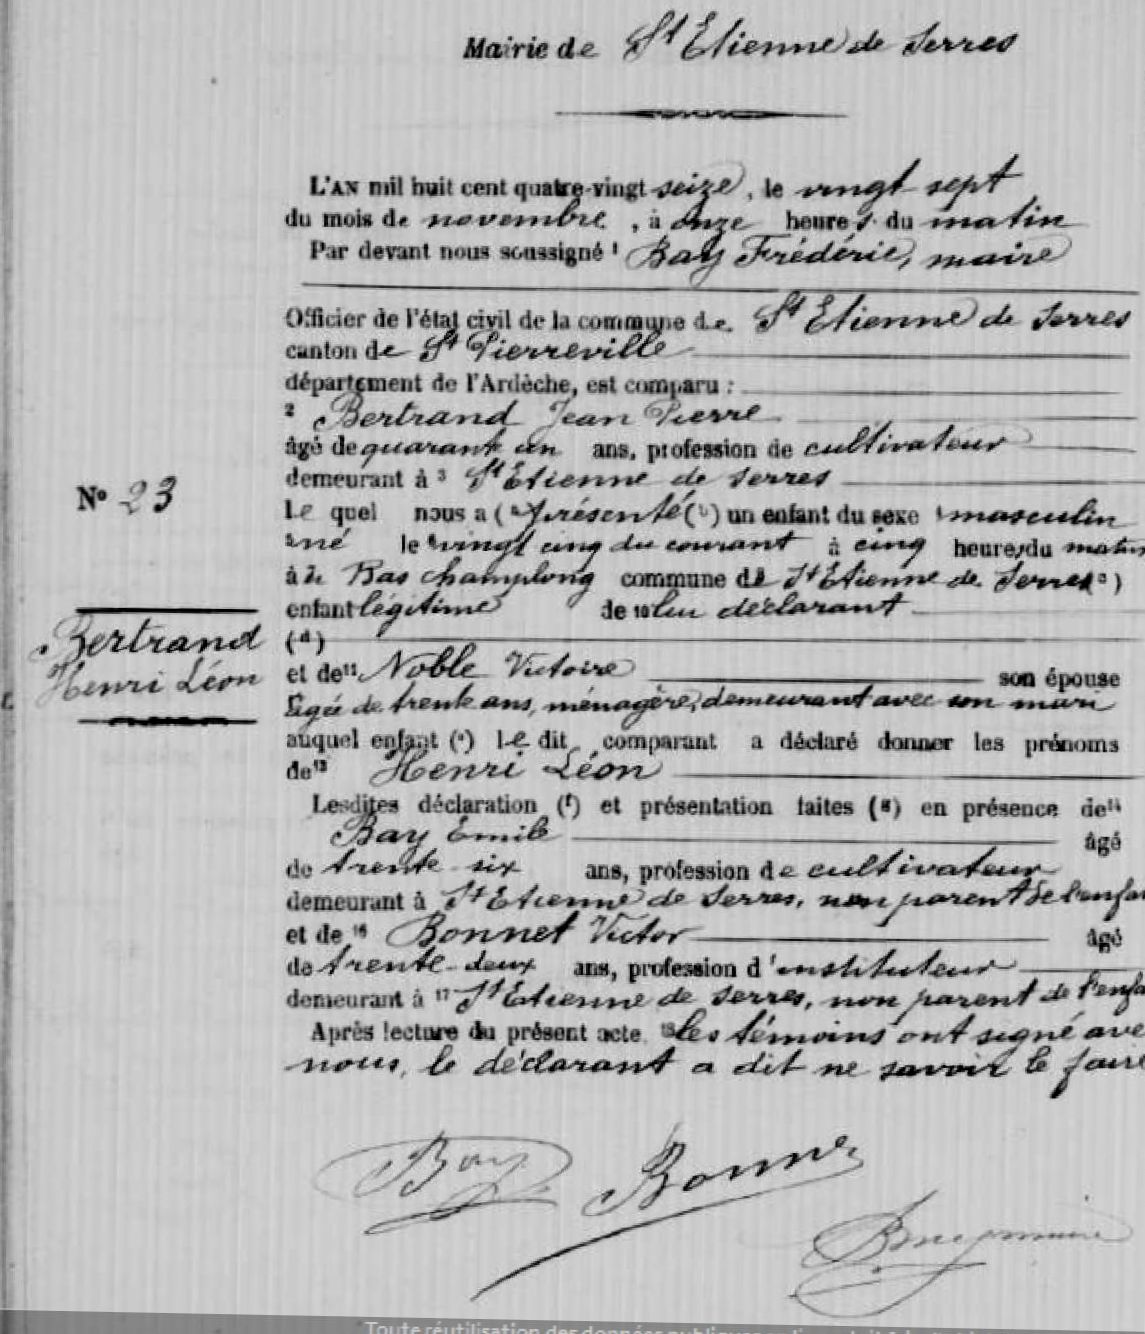 Mairie de St Etienne de Serres
L'AN mil huit cent quatre-vingt seize, le vingt sept
du mois de novembre, à onze heures du matin
Par devant nous soussigné 1 Bay Frédéric, maire
Officier de l'état civil de la commune de St Etienne de Serres
canton de St Pierreville
département de l'Ardèche, est comparu :
2 Bertrand Jean Pierre
âgé de quarante un ans, profession de cultivateur
demeurant à 3 St Etienne de Serres
N° 23
Le quel nous a (a présenté (b) un enfant du sexe masculin
né le vingt cinq du courant à cinq heures du matin
à Bas champlong commune de St Etienne de Serres c)
enfant légitime de 10 lui déclarant
Bertrand
Henri Léon
(d)
et de 11 Noble Victoire son épouse
âgée de trente ans, ménagère, demeurant avec son mari
auquel enfant (e) le dit comparant a déclaré donner les prénoms
de 13 Henri Léon
Lesdites déclaration (f) et présentation faites (g) en présence de 14
Bay Emile âgé
de trente six ans, profession de cultivateur
demeurant à St Etienne de Serres, non parent de l'enfa
et de 16 Bonnet Victor âgé
de trente-deux ans, profession d'instituteur
demeurant à 17 St Etienne de Serres, non parent de l'enfa
Après lecture du présent acte, 18 les témoins ont signé ave
nous, le déclarant a dit ne savoir le faire
Bay Bonnet
Toute réutilisation des données publiques